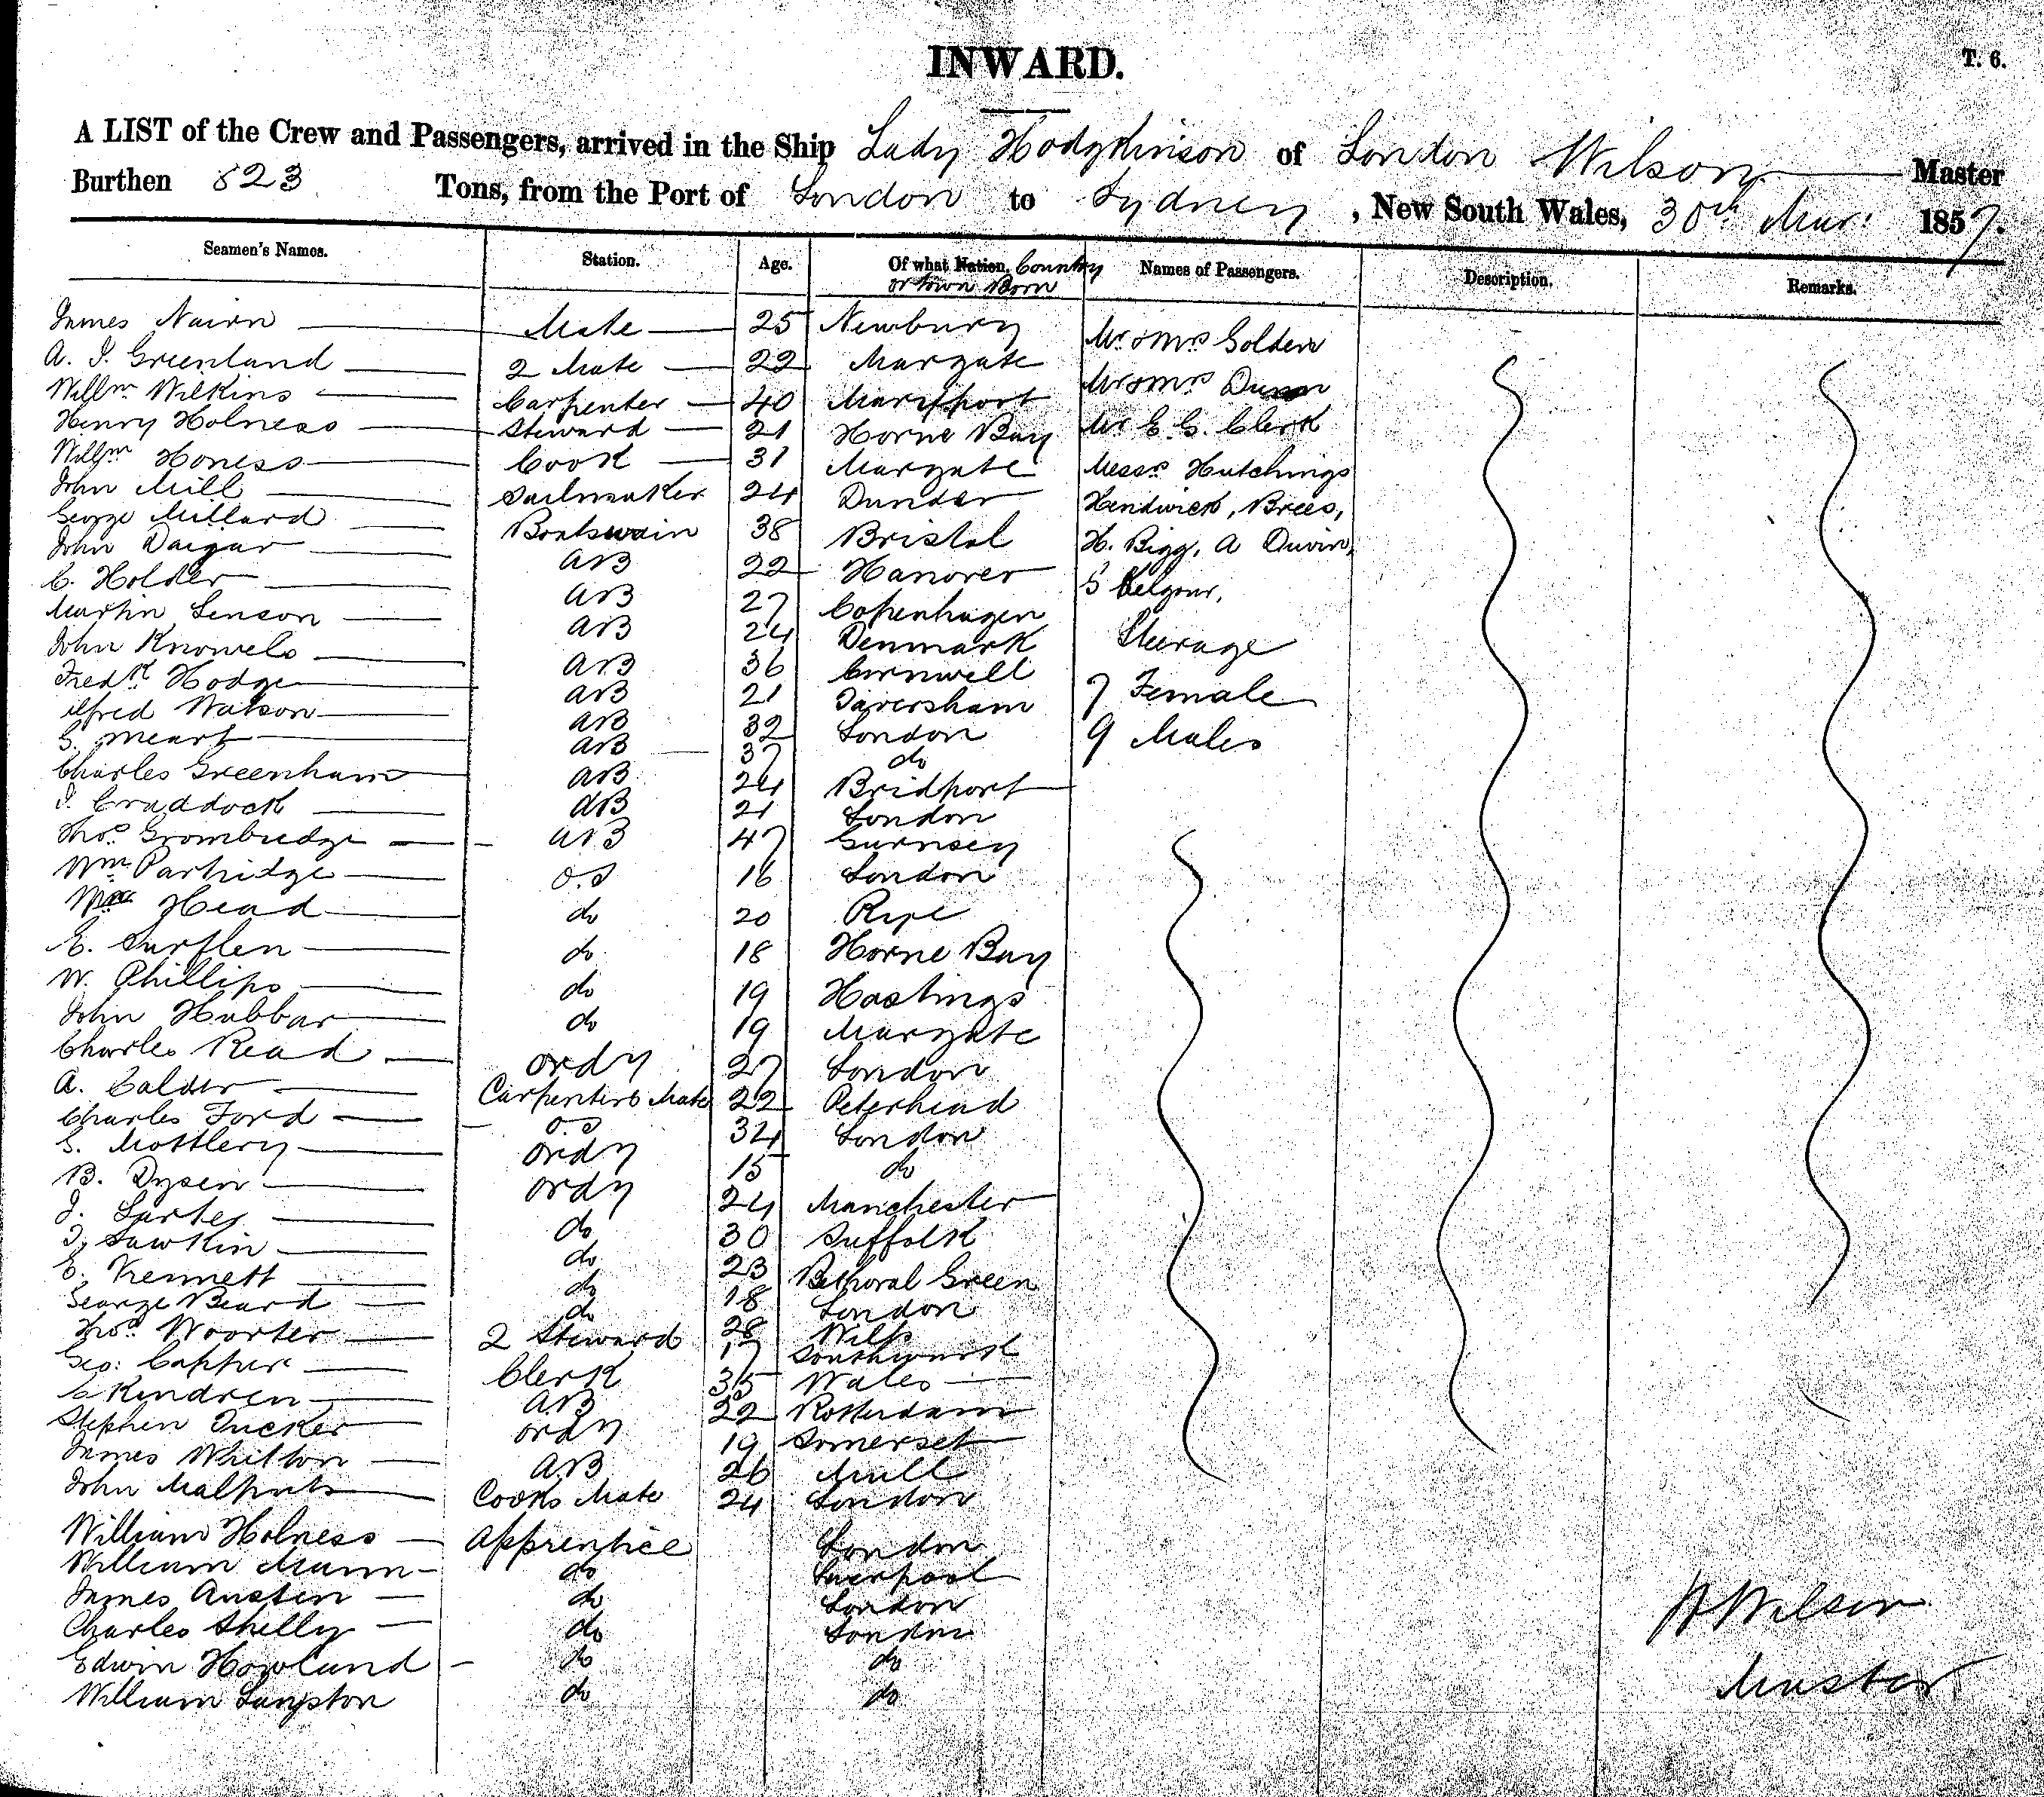 INWARD.
T. 6.
A LIST of the Crew and Passengers, arrived in the Ship Lady Hodgkinson of London Wilson Master
Burthen 823 Tons, from the Port of London to Sydney, New South Wales, 30th Mar: 1857.
Seamen's Names. Station. Age. Of what Nation, Country Names of Passengers. Description. Remarks.
or town Born
James Nairn Mate 25 Newbury Mr & Mrs Golden
A. J. Greenland 2 Mate 22 Margate Mr & Mrs Dunn
Willm Wilkins Carpenter 40 Maryport Mr E. C. Clerk
Henry Holness Steward 21 Horne Bay Messrs Hutchings
Willm Honess Cook 31 Margate Hendwick, Brees,
John Mill Sailmaker 24 Dundee H. Bigg, A Duvin,
George Millard Boatswain 38 Bristol S Kelgour,
John Daigar AB 22 Hanover Steerage
C. Holder AB 27 Copenhagen 7 Female
Martin Senson AB 24 Denmark 9 Males
John Knowels AB 36 Cornwell
Fredk Hodge AB 21 Faversham
Alfred Watson AB 32 London
S. Meart AB 37 do
Charles Greenham AB 24 Bridport
J. Craddock AB 21 London
Thos. Grombridge AB 47 Gurnsey
Wm Partridge O.S 16 London
Wm Head do 20 Ripe
E. Surflen do 18 Horne Bay
W. Phillips do 19 Hastings
John Hubbar do 19 Margate
Charles Read Ordy 27 London
A. Calder Carpenters Mate 22 Peterhead
Charles Ford O.S 34 London
S. Mottlery Ordy 15 do
B. Dysen Ordy 24 Manchester
J. Sartes do 30 Suffolk
J. Sawkin do 23 Bethoral Green
E. Kennett do 18 London
George Beard do 28 Wilts
Thos. Woorter 2 Steward 17 Southwark
Geo: Capper Clerk 35 Wales
C Kendren AB 22 Rotterdam
Stephen Tucker Ordy 19 Somerset
James Whitton AB 26 Mull
John Malpruts Cooks Mate 24 London
William Holness Apprentice London
William Mann do Liverpool
James Austen do London
Charles Shelly do London
Edwin Howland do do
William Langston do do
W Wilson
Master